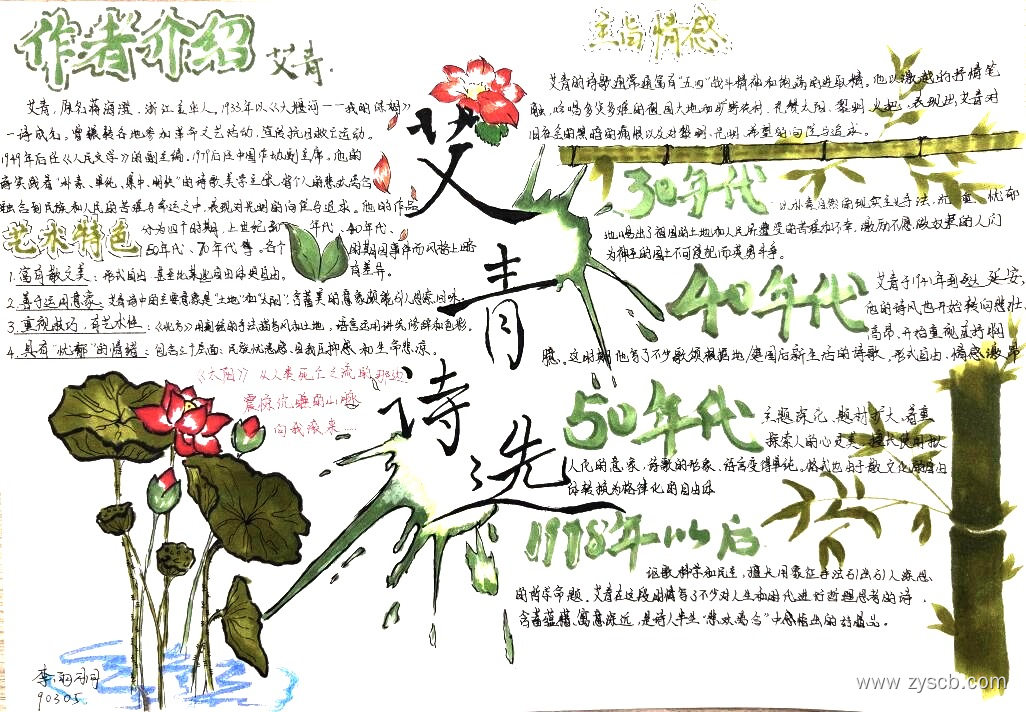 作者介绍
艾青.
艾青,原名蒋海澄,浙江金华人。1933年以《大堰河——我的保姆》
一诗成名。曾辗转各地参加革命文艺活动,宣传抗日救亡运动。
1949年后任《人民文学》的副主编,1979后任中国作协副主席。他的
诗实践着“朴素、单纯、集中、明快”的诗歌美学主张,将个人的悲欢离合
融合到民族和人民的苦难与命运之中,表现对光明的向往与追求。他的作品
分为四个时期,上世纪30年代、40年代、
50年代、70年代等。各个时期因事件而风格上略
有差异。
艺术特色
1.富有散文美:形式自由
2.善于运用意象:艾青诗中的主要意象是“土地”和“太阳”
3.重视技巧,有艺术性:
4.具有“忧郁”的情绪:包含三个层面:民族忧患感、自我压抑感和生命悲凉。
《太阳》从人类死亡之流的那边
震惊沉睡的山脉
向我滚来……
艾青诗选
主旨情感
艾青的诗歌通常通富有“五四”战斗精神和饱满的进取情。他以激越的抒情笔
触,咏唱多灾多难的祖国大地和旷野农村,礼赞太阳、黎明、火把,表现出艾青对
旧社会的黑暗的痛恨以及对黎明、光明、希望的向往与追求。
30年代
以朴素自然的现实主义手法,沉重、忧郁
地唱出了祖国的土地和人民所遭受的苦难和不幸,激励不愿做奴隶的人们
为神圣的国土不可侵犯而英勇斗争。
40年代
艾青于1941年到达延安,
他的诗风也开始转向悲壮、
高昂,开始重视直抒胸
臆。这时期他有了不少歌颂根据地、建国后新生活的诗歌,形式自由,情感激昂
50年代
主题深化、题材扩大,着重
探索人的心灵美,擅长使用拟
人化的意象,诗歌的形象、语言变得单纯。格式也由于散文化的自由
体转换为格律化的自由体
1978年以后
讴歌科学和民主,擅长用象征手法引出引人深思
的哲学命题,艾青在这段时间有了不少对人生和时代进行哲理思考的诗,
含蓄蕴藉、寓意深远,是诗人半生“悲欢离合”中感悟出的诗篇品。
李雨珂
90305
www.zyscb.com